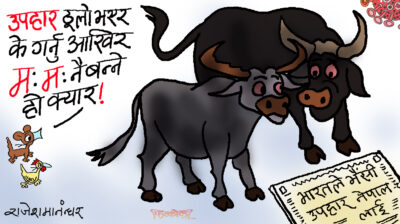 उपहार ठूलो भएर
के गर्नु आखिर
म: म: नै बन्ने
हो क्यार!
भारतले भैंसी
उपहार नेपाल
लाई
राजेशमानन्धर